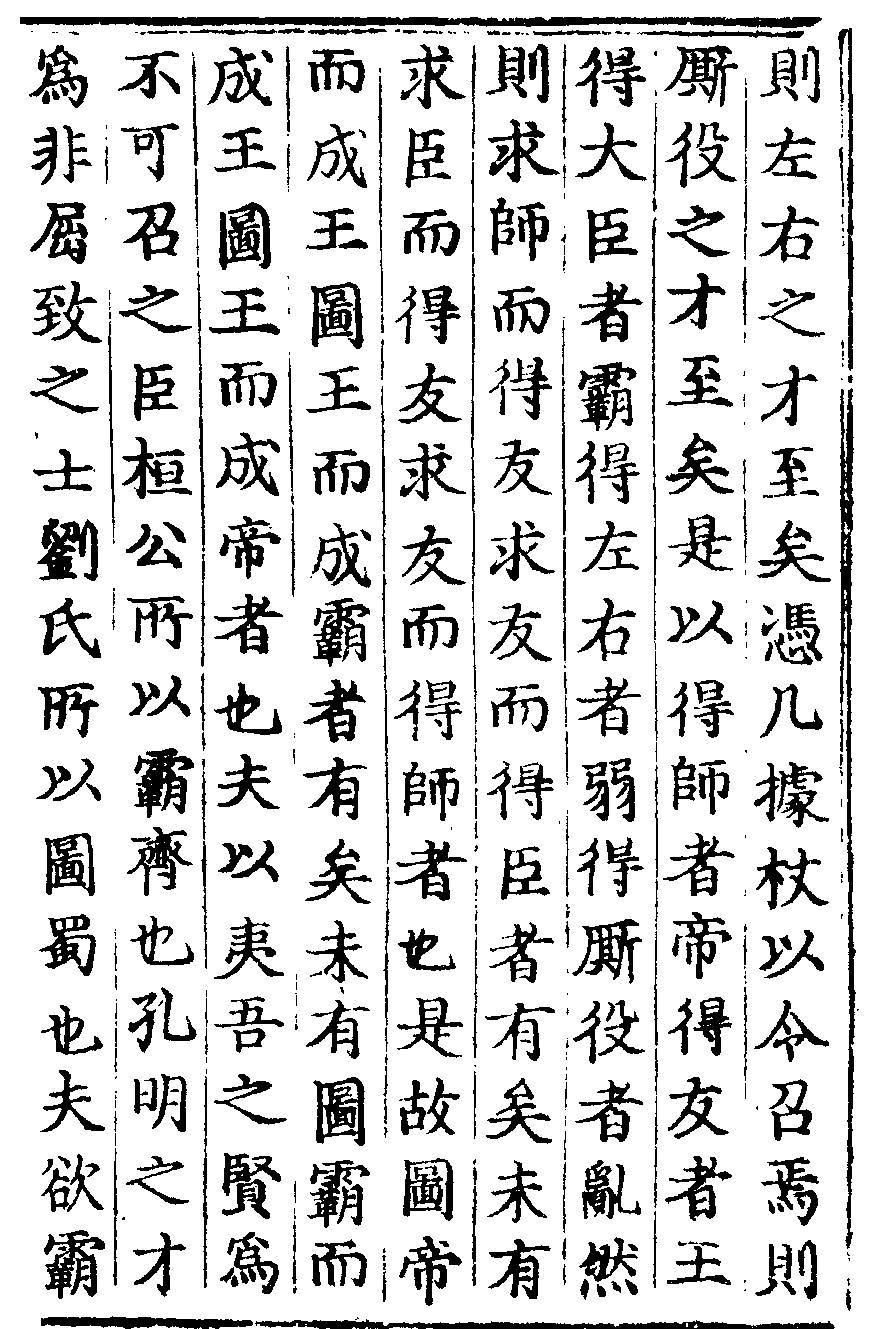 則左右之才至矣憑几據杖以令召焉則
厮役之才至矣是以得師者帝得友者王
得大臣者霸得左右者弱得厮役者亂然
則求師而得友求友而得臣者有矣未有
求臣而得友求友而得師者也是故圖帝
而成王圖王而成霸者有矣未有圖霸而
成王圖王而成帝者也夫以夷吾之賢爲
不可召之臣桓公所以霸齊也孔明之才
爲非屈致之士劉氏所以圖蜀也夫欲霸